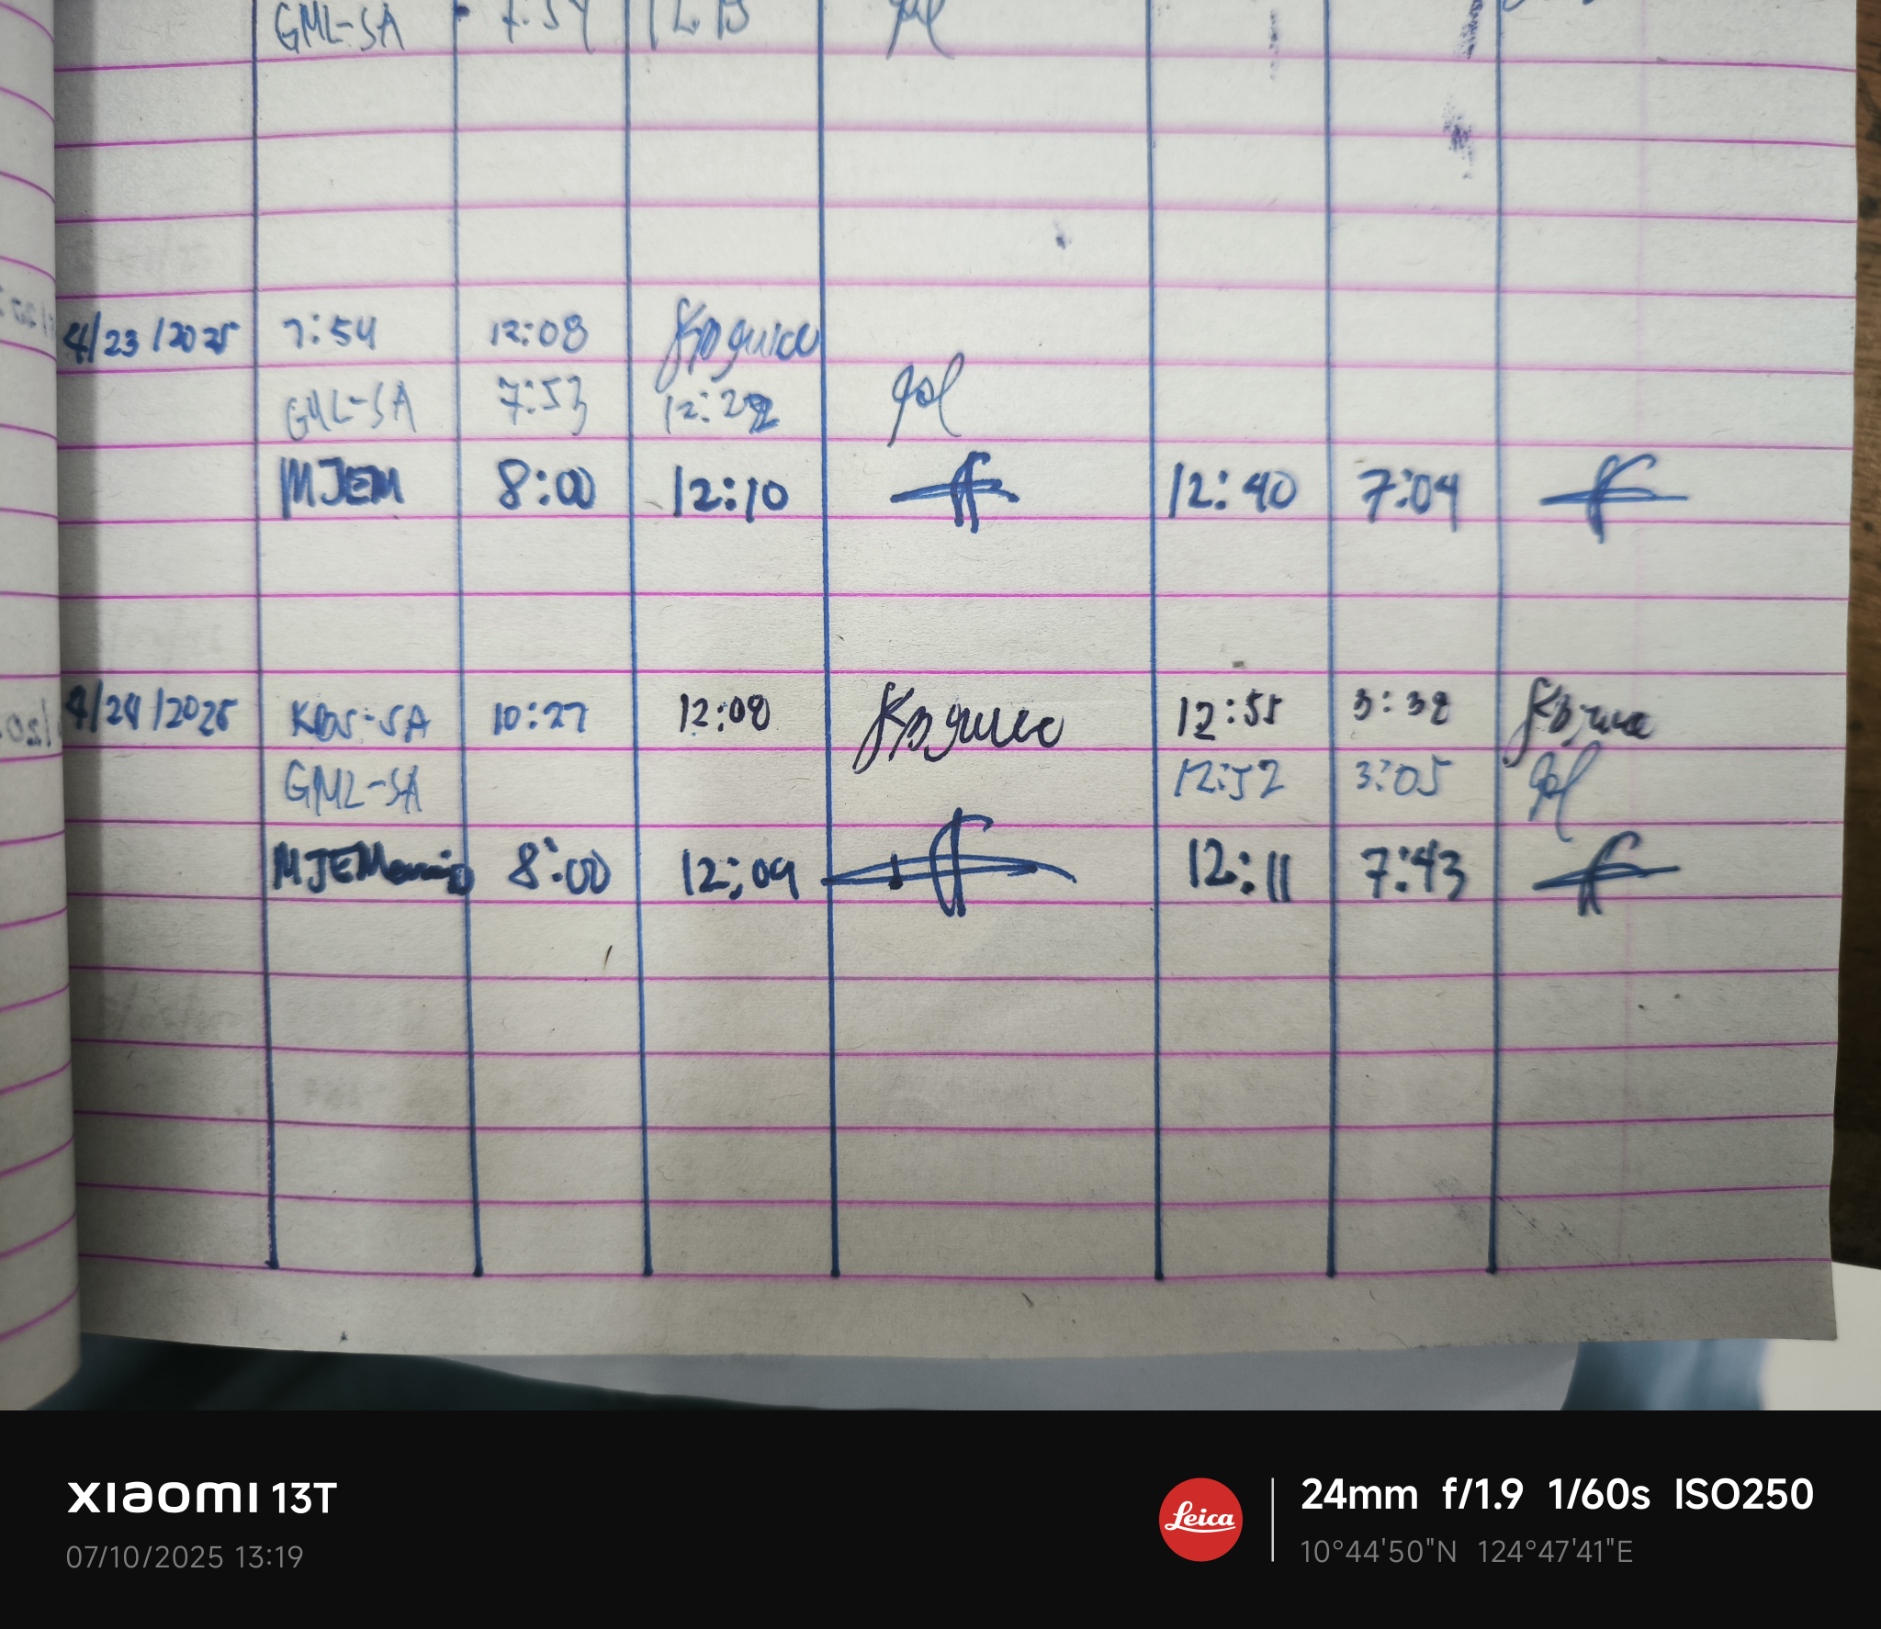 GML-SA 7:54 12:13
4/23/2025 7:54 12:08
GML-SA 7:53 12:22
MJEM 8:00 12:10 12:40 7:04
4/24/2025 KBS-SA 10:27 12:08 12:55 3:38
GML-SA 12:52 3:05
8:00 12:09 12:11 7:43
XIAOMI 13T
07/10/2025 13:19
Leica
24mm f/1.9 1/60s ISO250
10°44'50"N 124°47'41"E